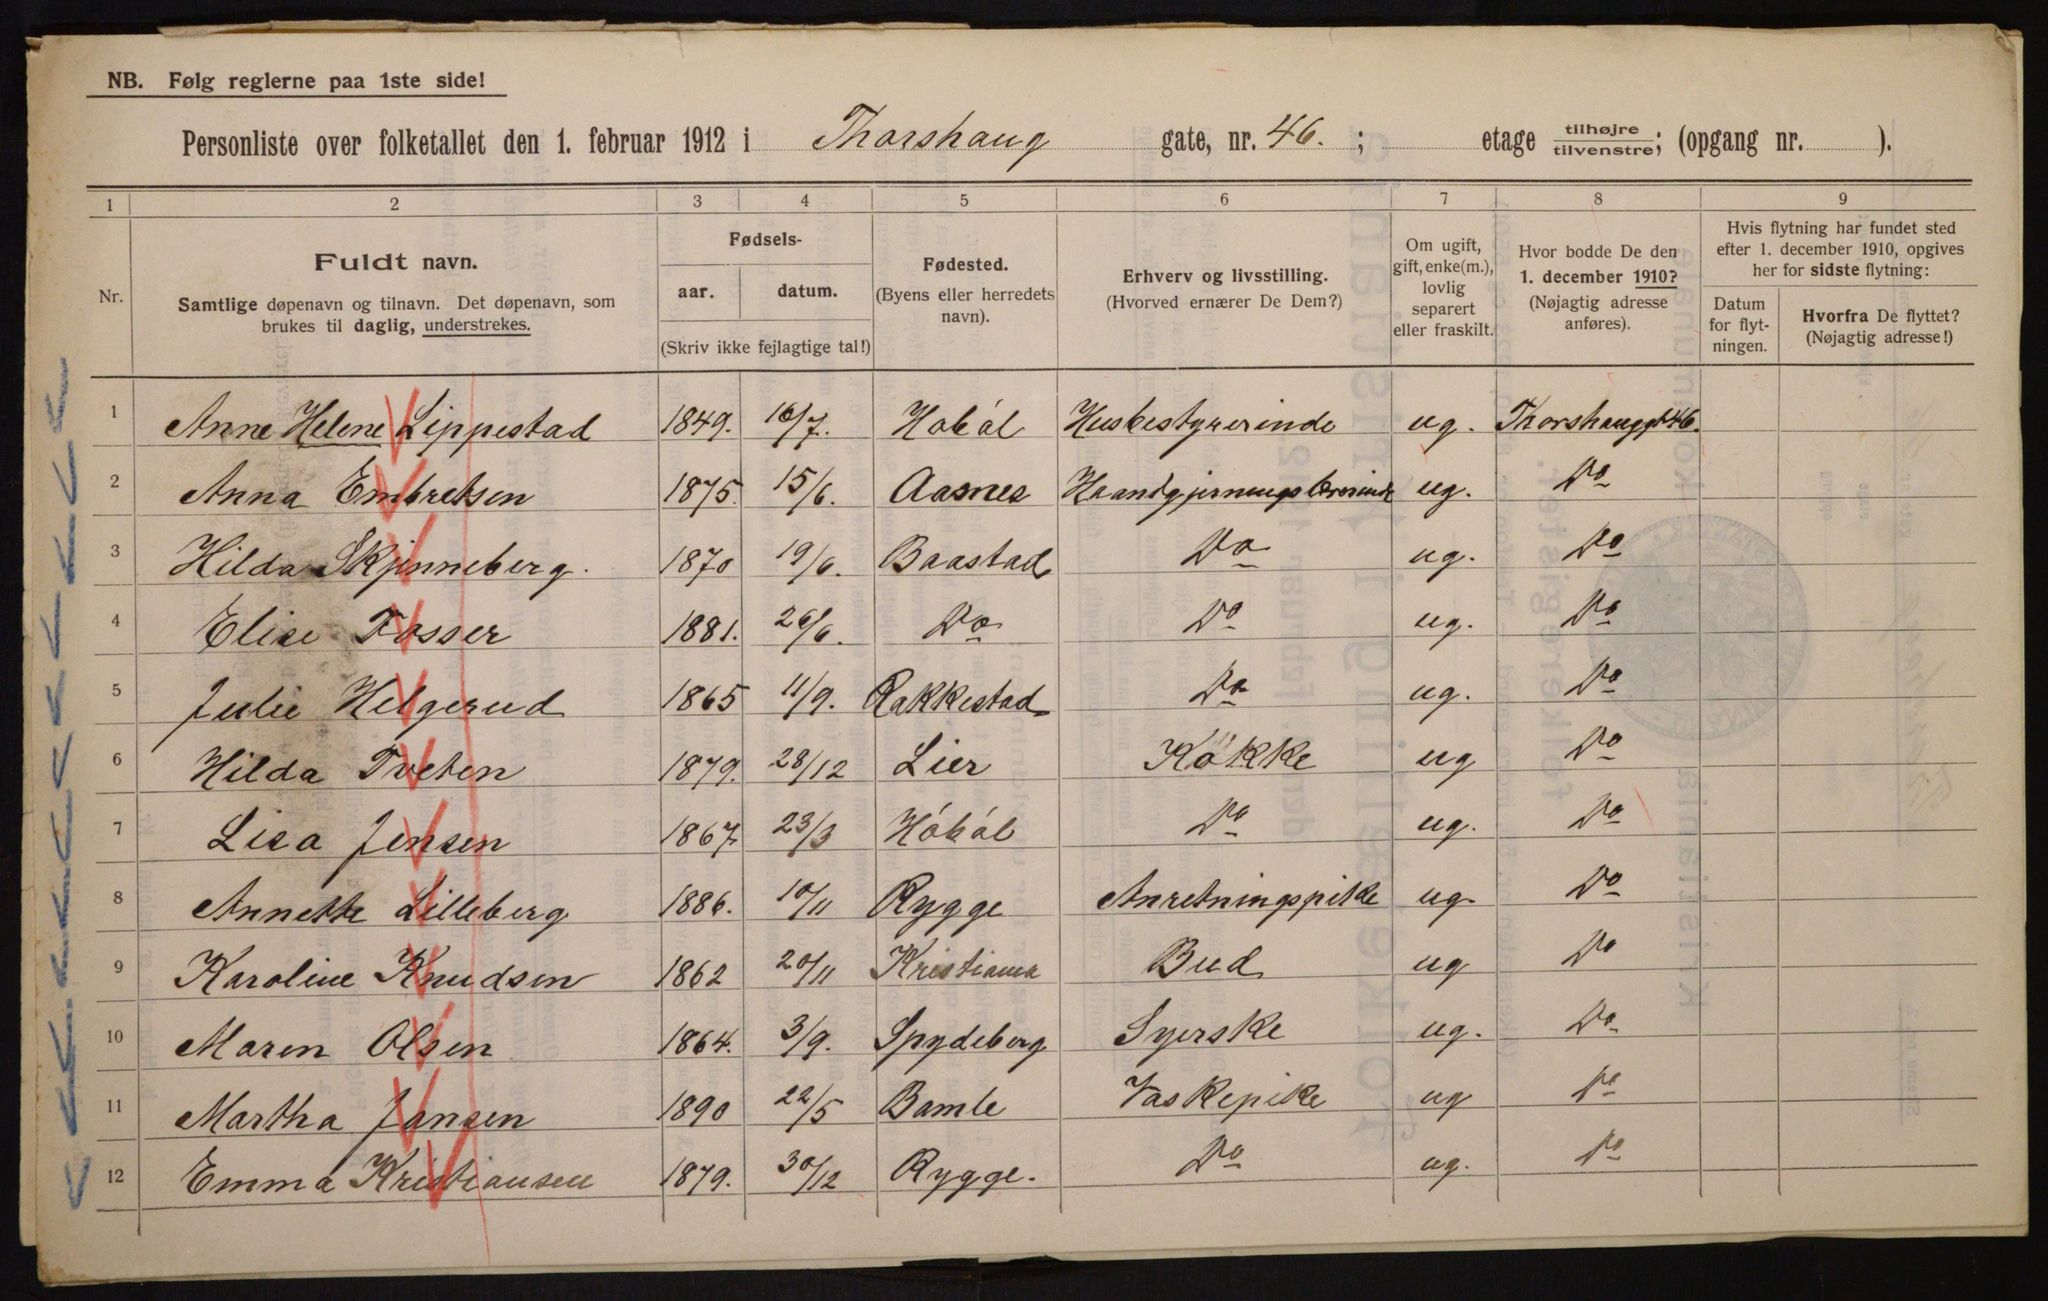 NB. Følg reglerne paa 1ste side!
Personliste over folketallet den 1. februar 1912 i Thorshaug gate, nr. 46. ; etage tilhøjre/tilvenstre; (opgang nr. ).
1 2 3 4 5 6 7 8 9
Nr.
Fuldt navn.
Samtlige døpenavn og tilnavn. Det døpenavn, som
brukes til daglig, understrekes.
Fødsels-
aar. datum.
(Skriv ikke fejlagtige tal!)
Fødested.
(Byens eller herredets
navn).
Erhverv og livsstilling.
(Hvorved ernærer De Dem?)
Om ugift,
gift, enke(m.),
lovlig
separert
eller fraskilt.
Hvor bodde De den
1. december 1910?
(Nøjagtig adresse
anføres).
Hvis flytning har fundet sted
efter 1. december 1910, opgives
her for sidste flytning:
Datum
for flyt-
ningen.
Hvorfra De flyttet?
(Nøjagtig adresse!)
1 Anne Helene Lippestad 1849. 16/7. Hobøl Husbestyrerinde ug. Thorshauggt 46.
2 Anna Embretsen 1875. 15/6. Aasnes Haandgjerningslærerinde ug. Do
3 Hilda Skjønneberg. 1870 19/6. Baastad Do ug. Do
4 Elise Fosser 1881. 26/6. Do Do ug. Do
5 Julie Helgerud 1865 11/9. Rakkestad Do ug. Do
6 Hilda Tveten 1879. 28/12 Lier Kökke ug Do
7 Lisa Jensen 1867. 23/3 Hóból Do ug. Do
8 Annette Lilleberg 1886. 10/11 Rygge Anretningspike ug. Do
9 Karoline Knudsen 1862 20/11 Kristiania Bud ug Do
10 Maren Olsen 1864. 3/9. Spydeberg Syerske ug. Do
11 Martha Jansen 1890 22/5 Bamle Vaskepike ug Do
12 Emma Kristiansen 1879. 30/12 Rygge. Do ug. Do